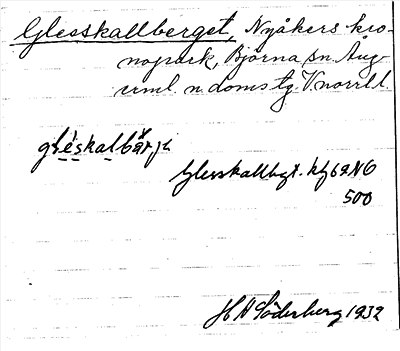 Glesskallberget, Nyåkers kro-
nopark, Björna sn. Ång-
erml. n. domstg. V.norrl. l.
gleskalbärje
Glesskallbgt. kfb 62 NO
500
H N Söderberg 1932